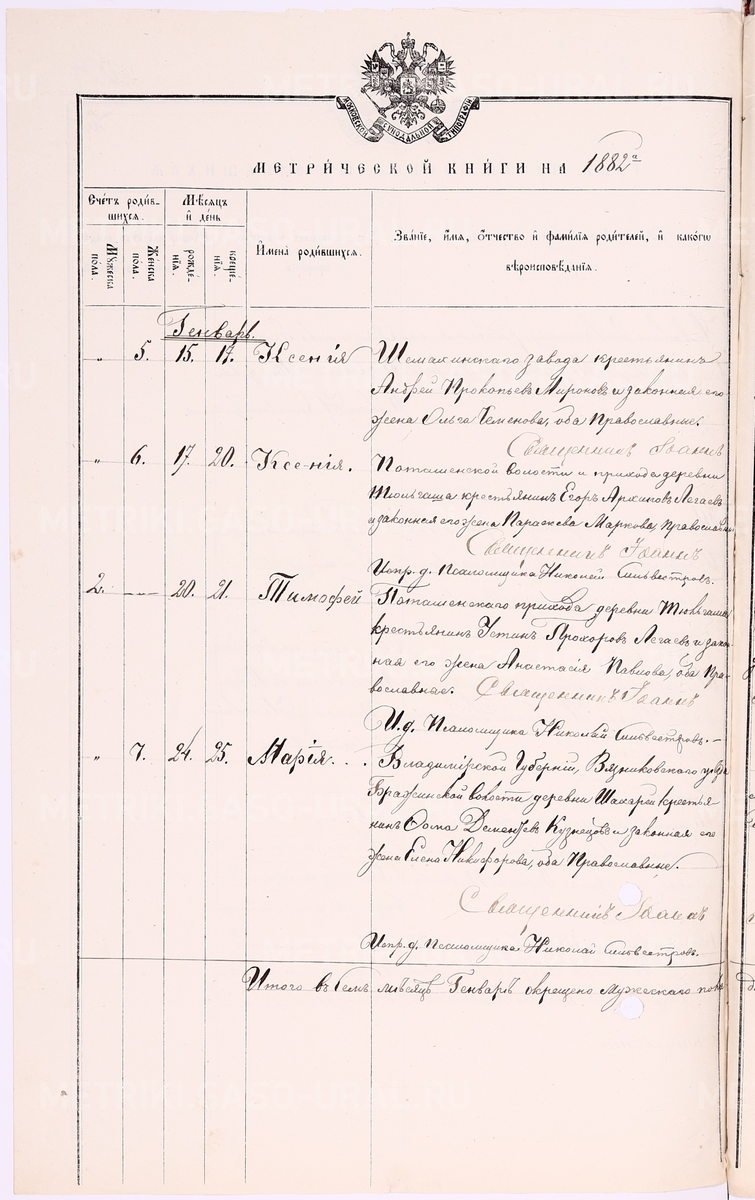 МОСКОВСКОЙ СѴНОДАЛЬНОЙ ТИПОГРАФІИ
МЕТРИ́ЧЕСКОЙ КНИ́ГИ НА 1882а
Сче́тъ роди́в-
шихся.
Мѣ́сяцъ
и де́нь
Мꙋ́жеска
по́ла.
Же́нска
по́ла.
рожде́-
нїѧ.
креще́-
нїѧ.
Имена̀ роди́вшихся.
Зва́нїе, и́мѧ, ѻ́тчество и фами́лїѧ роди́телей, и како́гѡ
вѣроисповѣ́данїѧ.
Генварь.
„ 5. 15. 17. Ксенія
Шемахинскаго завода крестьянинъ
Андрей Прокопьевъ Мироновъ и законная его
жена Ольга Семенова, оба Православные.
Священникъ Іоаннъ
„ 6. 17. 20. Ксенія.
Поташенской волости и прихода деревни
Тюльгаша крестьянинъ Егоръ Архиповъ Легаевъ
и законная его жена Параскева Маркова, Православные
Священникъ Іоаннъ
Испр. д. Псаломщика Николай Сильвестровъ.
2. — 20. 21. Тимофей
Поташенскаго прихода деревни Тюльгаша
крестьянинъ Устинъ Прохоровъ Легаевъ и закон-
ная его жена Анастасія Павлова, оба Пра-
вославные. Священникъ Іоаннъ
И. д. Псаломщика Николай Сильвестровъ. —
„ 7. 24. 25. Марія. . .
Владимірской Губерніи, Вязниковскаго уѣзда
волости деревни крестья-
нинъ Ѳома Дементьевъ Кузнецовъ и законная его
жена Елена Никифорова, оба Православные.
Священникъ Іоаннъ
Испр. д. Псаломщика Николай Сильвестровъ.
Итого въ семъ мѣсяцѣ Генварѣ окрещено мужескаго пола